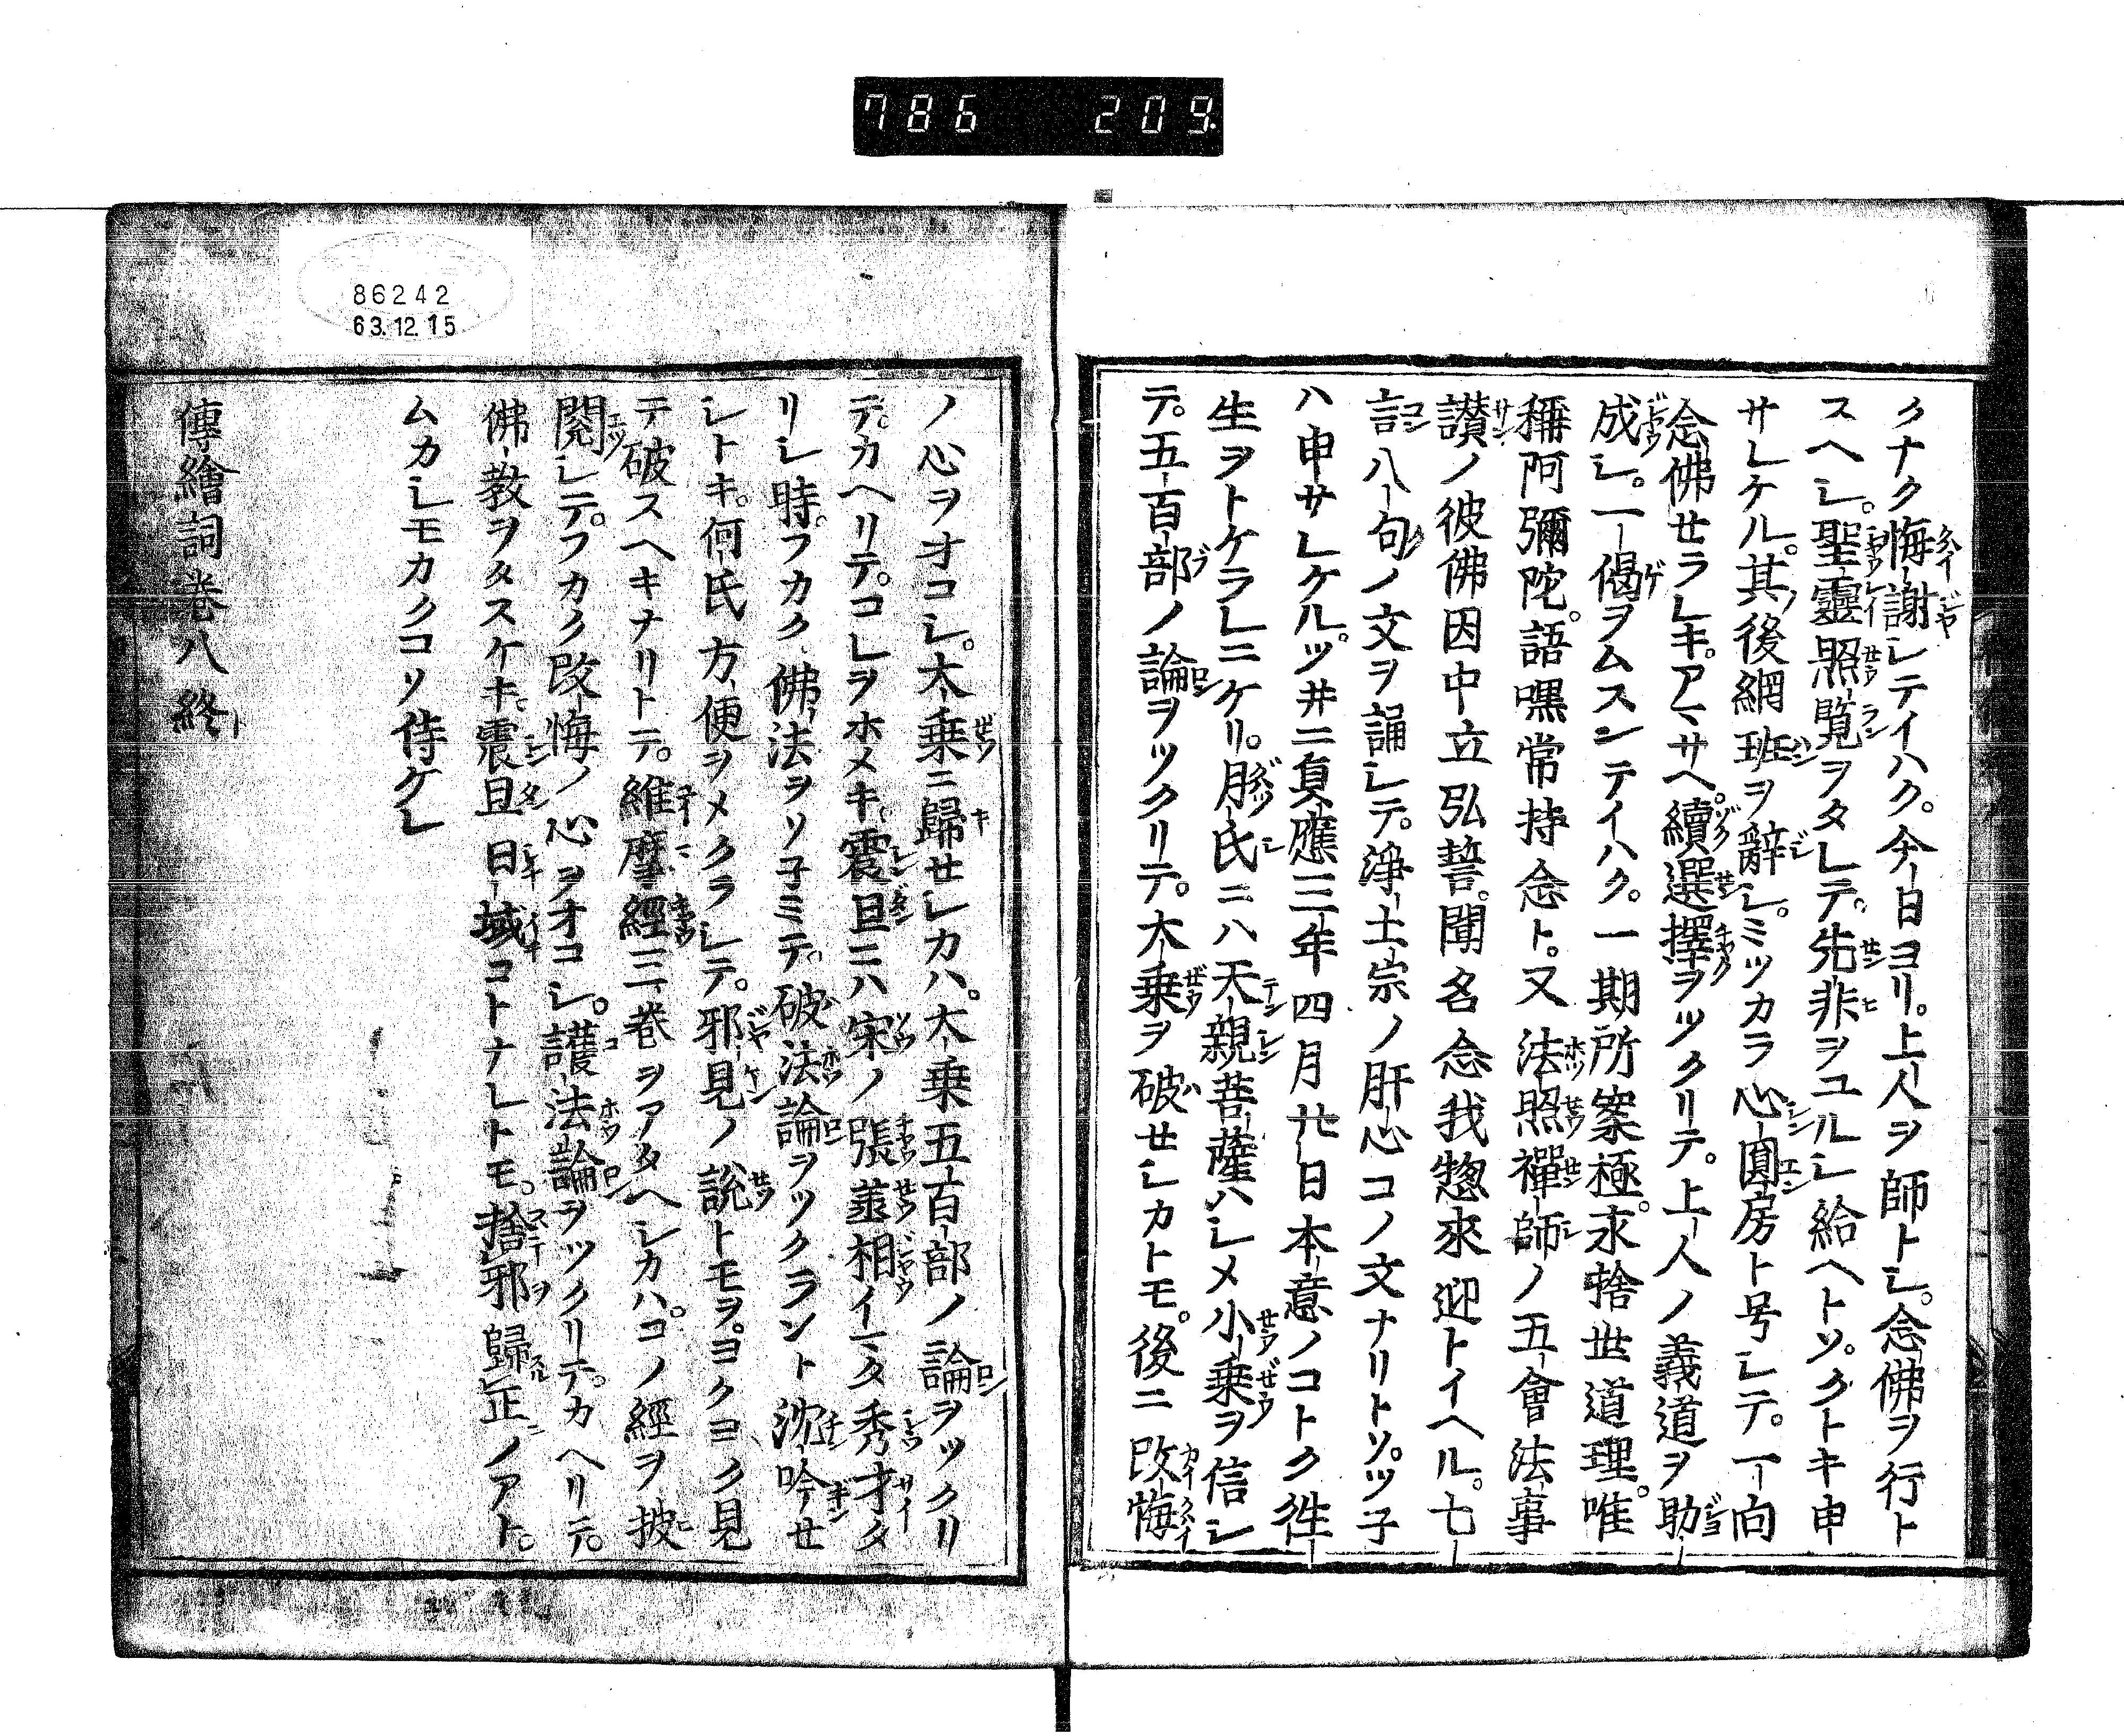 786 209
クナク悔謝シテイハク。今日ヨリ。上人ヲ師トシ。念佛ヲ行ト
スヘシ。聖靈照覧ヲタレテ。先非ヲユルシ給ヘトソ。クトキ申
サレケル。其後網班ヲ辭シ。ミツカラ心圓房ト号シテ。一向
念佛セラレキ。アマサヘ。續選擇ヲツクリテ。上人ノ義道ヲ助
成シ。一偈ヲムスンテイハク。一期所案極。永捨世道理。唯
稱阿彌陀。語嘿常持念ト。又法照禪師ノ五會法事
讃ノ彼佛因中立弘誓。聞名念我惣來迎トイヘル。七
言八句ノ文ヲ誦シテ。淨土宗ノ肝心コノ文ナリトソ。ツ子
ハ申サレケル。ツ井ニ貞應三年四月廿日本意ノコトク徃
生ヲトケラレニケリ。月氏ニハ天親菩薩ハシメ小乗ヲ信シ
テ。五百部ノ論ヲツクリテ。大乗ヲ破セシカトモ。後ニ改悔
86242
63.12.15
ノ心ヲオコシ。大乗ニ歸セシカハ。大乗五百部ノ論ヲツクリ
テ。カヘリテ。コレヲホメキ。震旦ニハ宋ノ張啇相イマタ秀才タ
リシ時。フカク佛法ヲソ子ミテ。破法論ヲツクラント沈吟セ
シトキ。何氏方便ヲメクラシテ。邪見ノ說トモヲ。ヨクヨク見
テ破スヘキナリトテ。維摩經三巻ヲアタヘシカハ。コノ經ヲ披
閲シテ。フカク改悔ノ心ヲオコシ。護法論ヲツクリテ。カヘリテ。
佛教ヲタスケキ。震旦日域コトナレトモ。捨邪歸正ノアト。
ムカシモカクコソ侍ケレ
傳繪詞巻八終